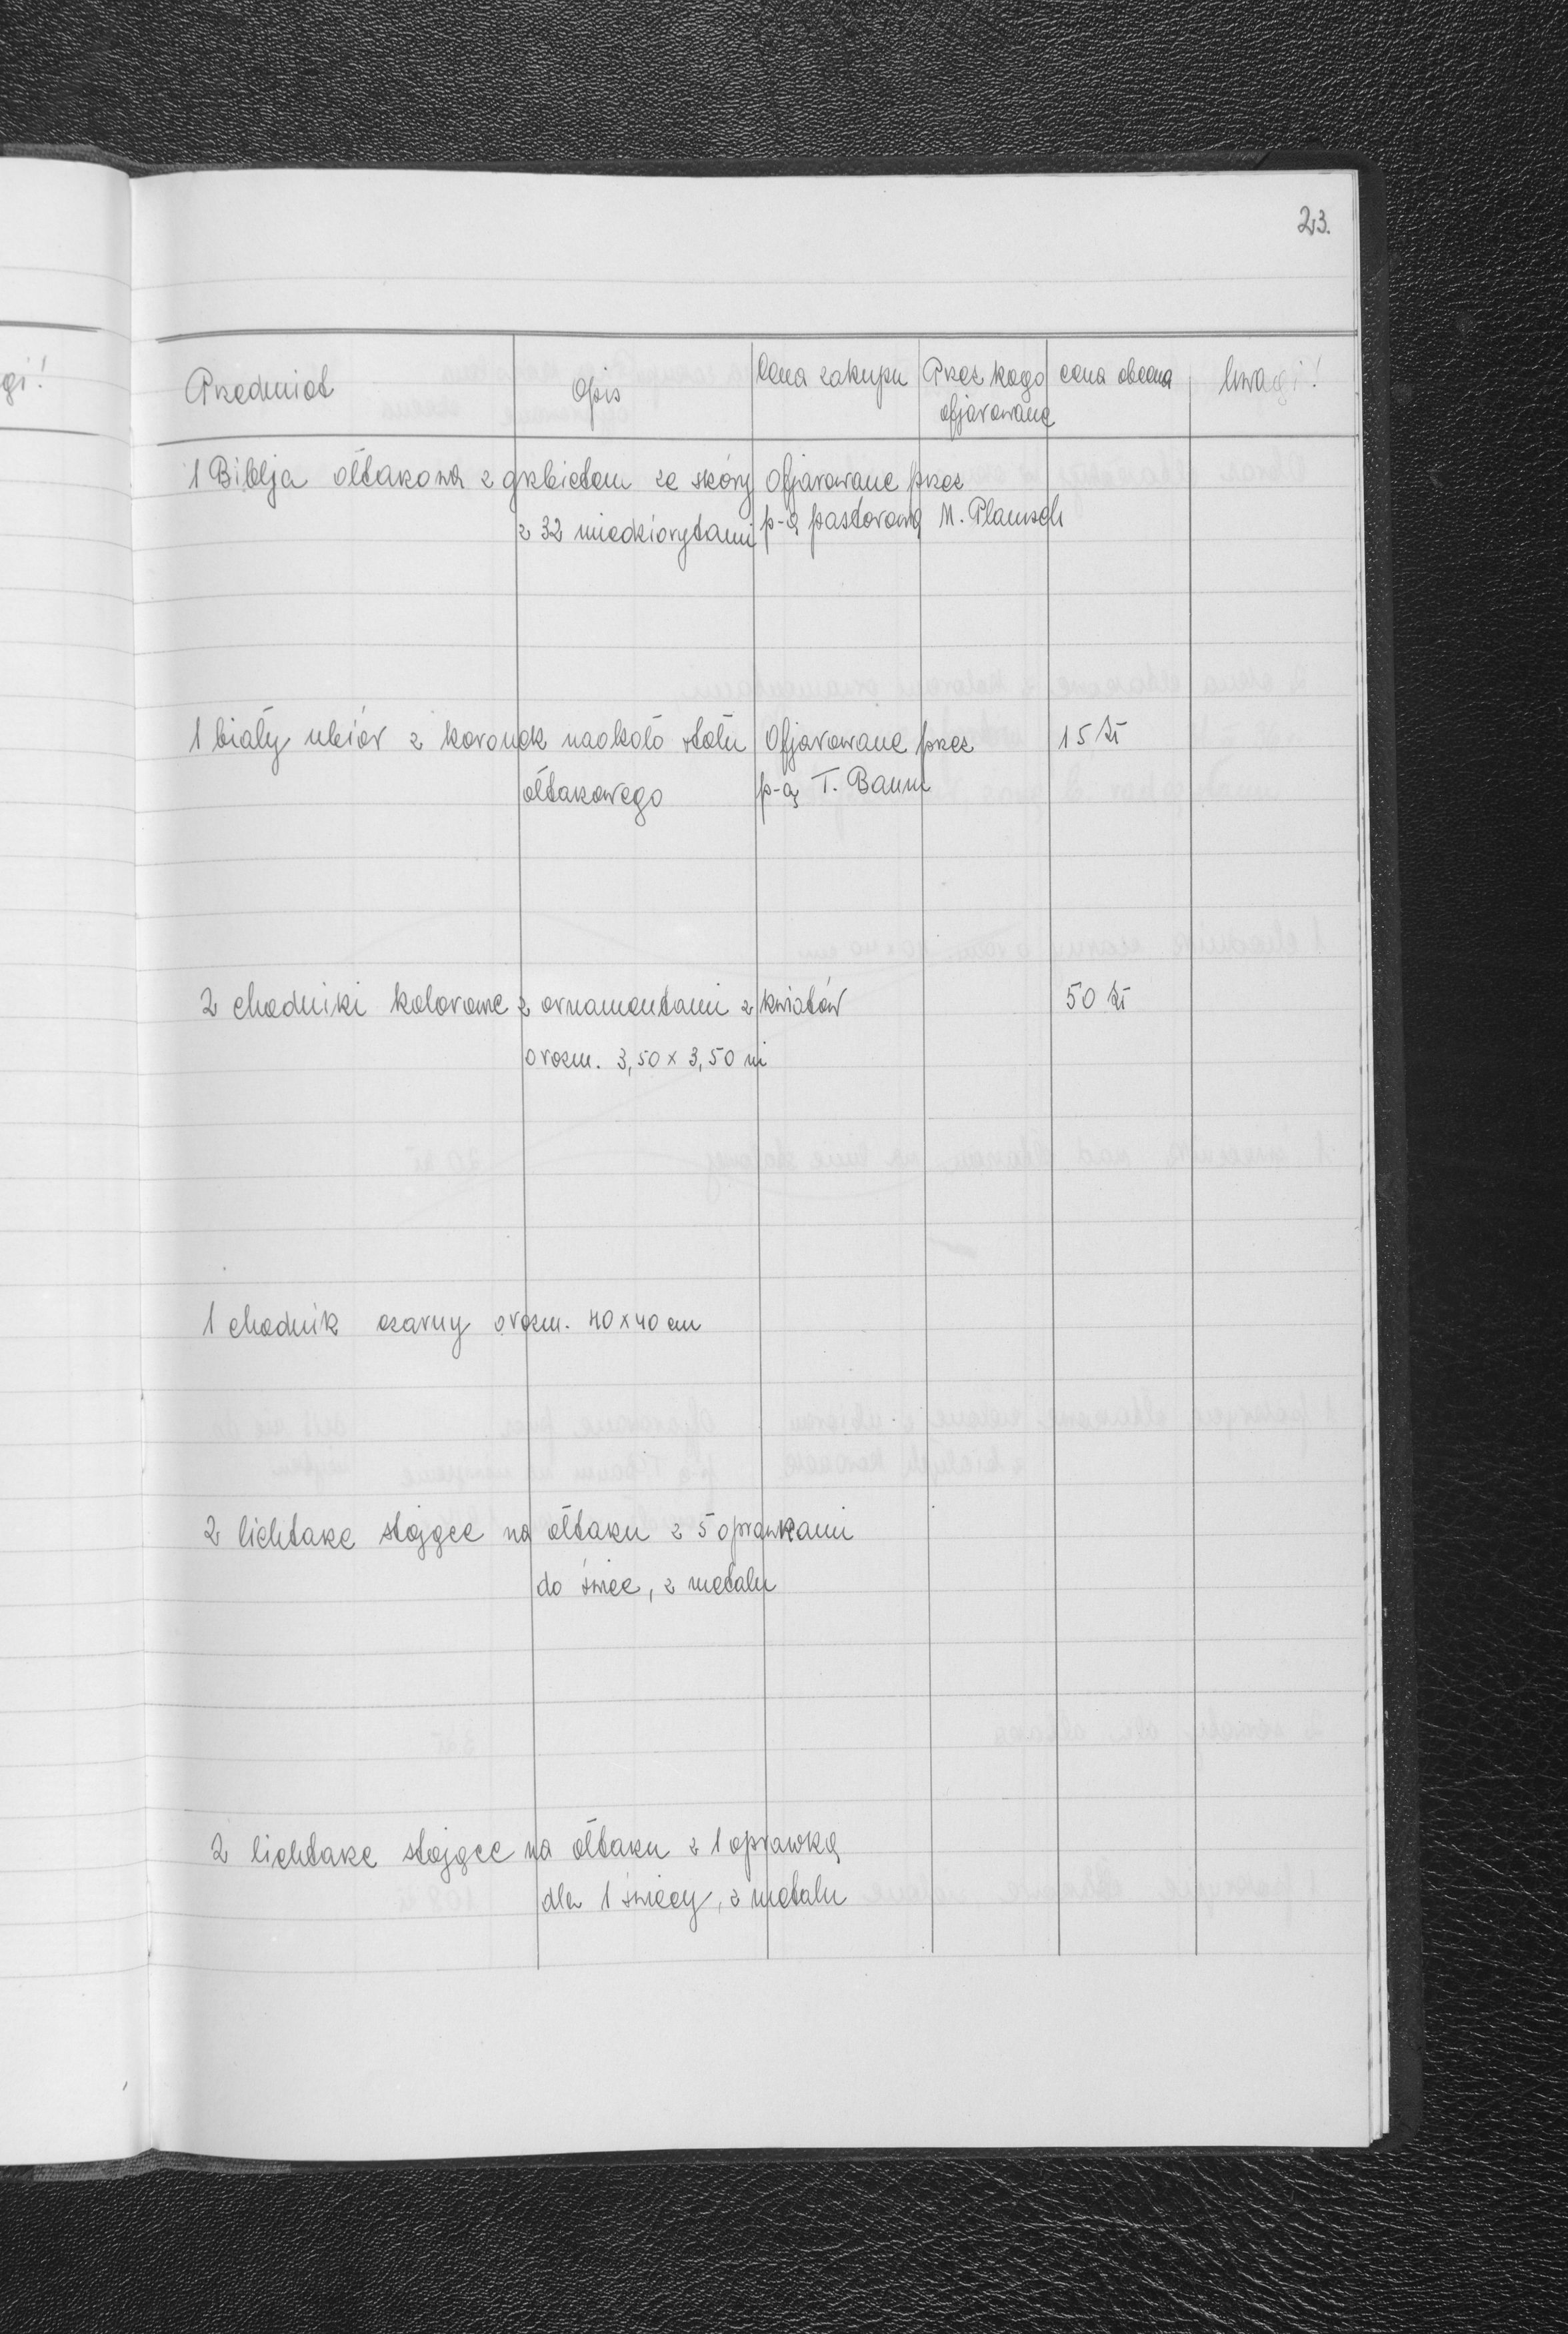 23.
Przedmiot Opis Cena zakupu Przez kogo cena obecna Uwagi!
ofjarowane
1 Biblja ołtarzowa z grzbietem ze skóry Ofjarowane przez
z 32 miedziorytami p-ą pastorową M. Plamsch
1 biały ubiór z koronek naokoło stołu Ofjarowane przez 15 zł
ołtarzowego p-ą T. Baum
2 chodniki kolorowe z ornamentami z kwiatów 50 zł
o rozm. 3,50 x 3,50 m
1 chodnik czarny o rozm. 40 x 40 cm
2 lichtarze stojące na ołtarzu z 5 oprawkami
do świec, z metalu
2 lichtarze stojące na ołtarzu z 1 oprawką
dla 1 świecy, z metalu
gi!